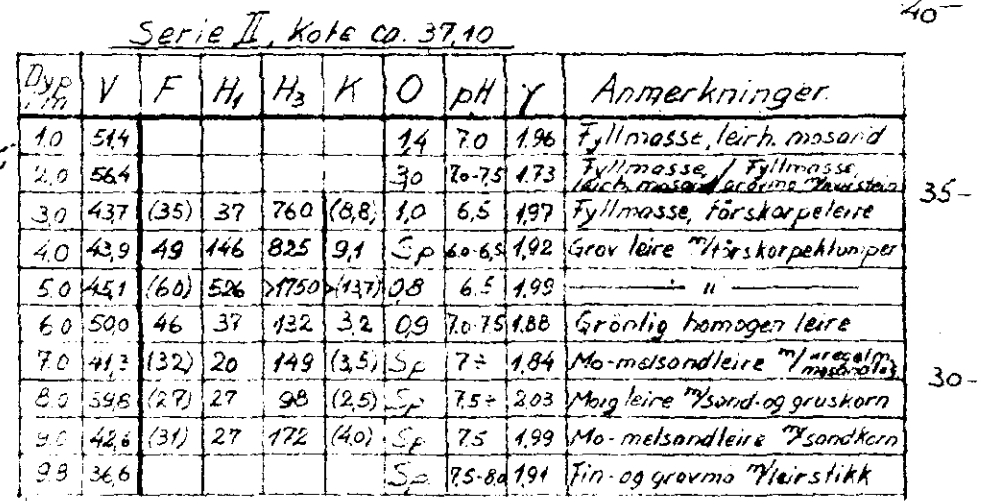 40-
Serie II, Kote ca. 37,10
Dyp i m V F H₁ H₃ K O pH γ Anmerkninger.
1.0 51,4 1,4 7.0 1.96 Fyllmasse, leirh. mosand
2.0 56,4 3,0 7.0-7.5 1.73 Fyllmasse, leirh. mosand / Fyllmasse,
35-
3.0 43,7 (35) 37 760 (8,8) 1,0 6,5 1,97 Fyllmasse, törskorpeleire
4.0 43,9 49 146 825 9,1 Sp 6.0-6,5 1,92 Grov leire m/törskorpeklumper
5.0 45,1 (60) 526 >1750 >(13,7) 0,8 6.5 1.99 — " —
6.0 50,0 46 37 132 3,2 0,9 7.0-7.5 1.88 Grönlig homogen leire
7.0 41, (32) 20 149 (3,5) Sp 7÷ 1,84 Mo-melsandleire m/uregelm.
30-
8.0 39,8 (27) 27 98 (2,5) Sp 7,5÷ 2,03 Morg leire m/sand-og gruskorn
9.0 42,6 (31) 27 172 (4,0) Sp 7.5 1,99 Mo-melsandleire m/sandkorn
9.8 36,6 Sp 7.5-8.0 1,91 Fin-og grovmo m/leirstikk